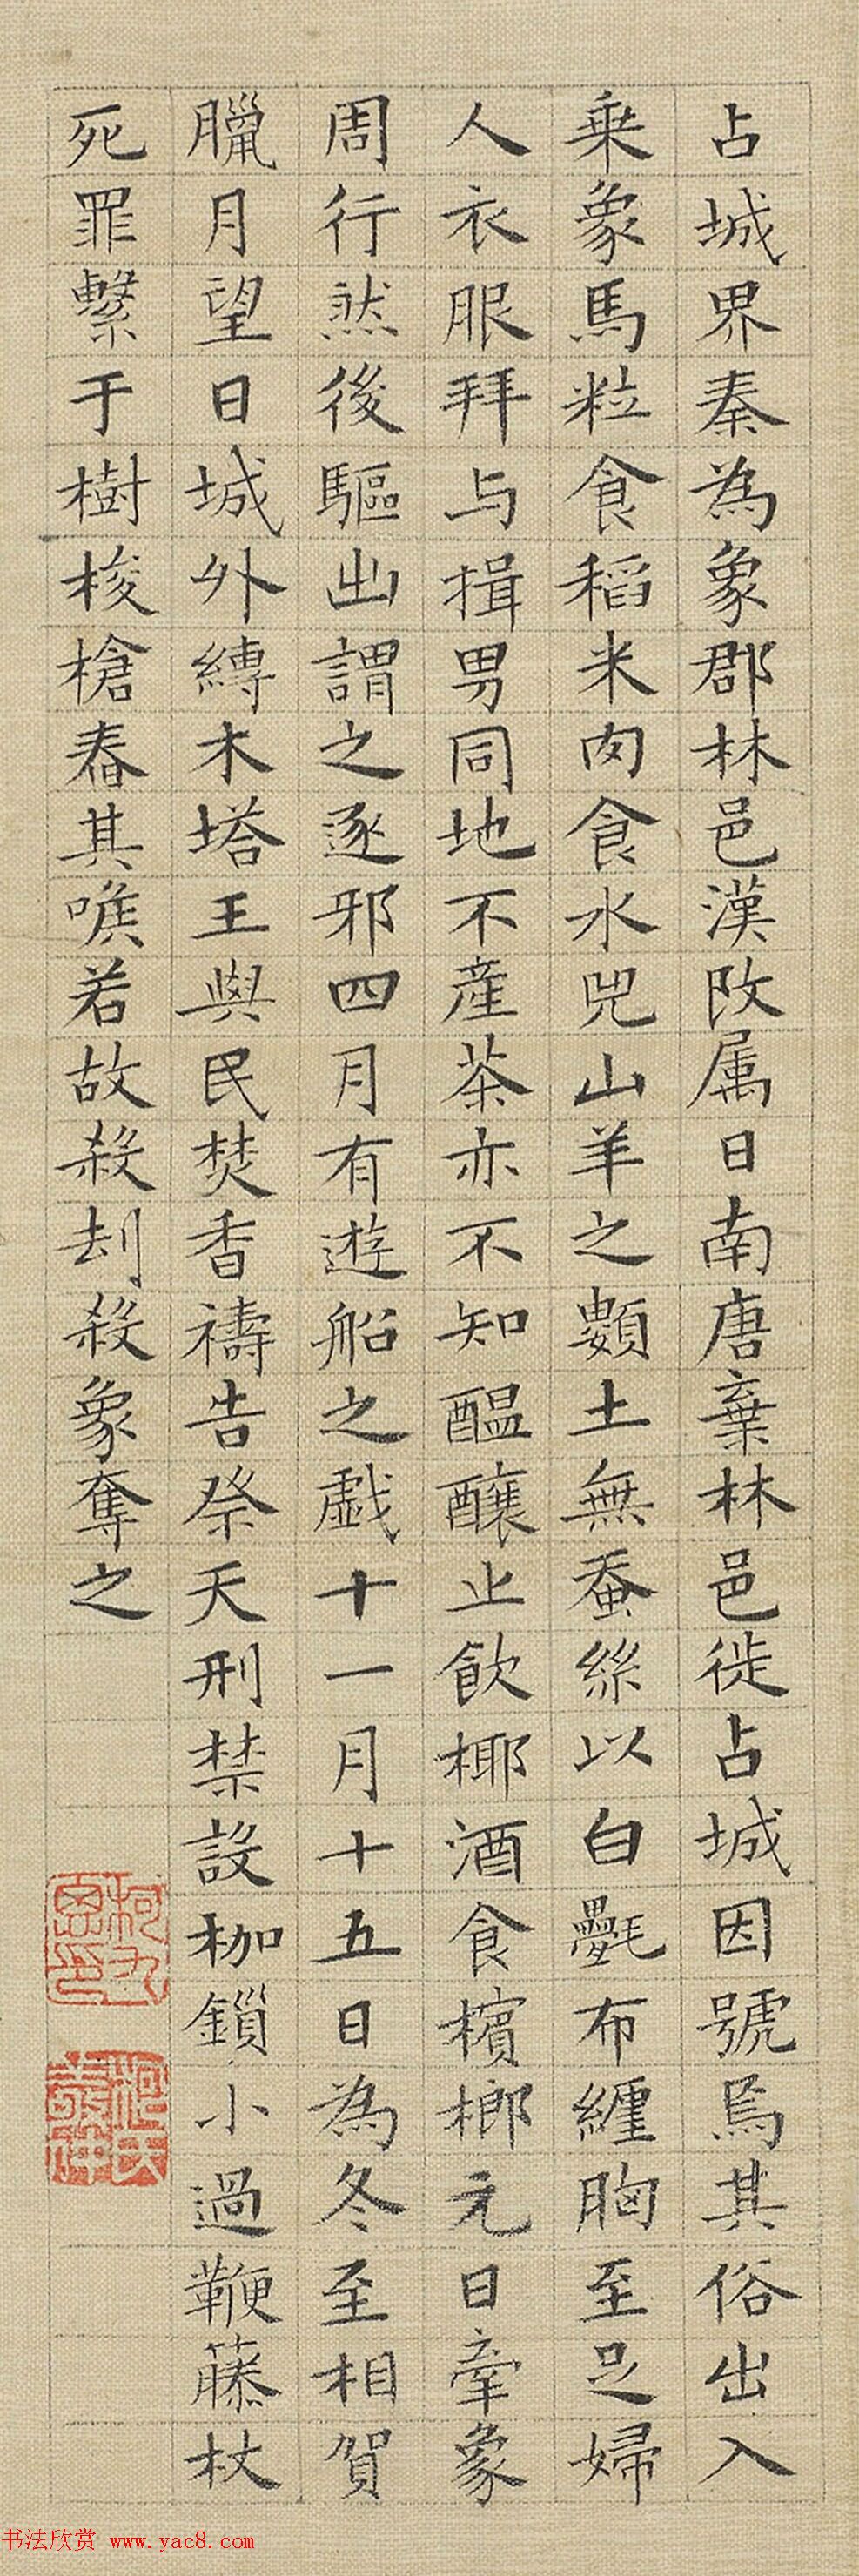 占城界秦為象郡林邑漢改属日南唐棄林邑徙占城因號焉其俗出入
乘象馬粒食稻米肉食水兕山羊之類土無蚕絲以白㲲布纏胸至足婦
人衣服拜与揖男同地不産茶亦不知醞釀止飲椰酒食檳榔元日牽象
周行然後驅出謂之逐邪四月有遊船之戯十一月十五日為冬至相賀
臘月望日城外縛木塔王與民焚香禱告祭天刑禁設枷鎖小過鞭藤杖
死罪繫于樹梭槍舂其喉若故殺刦殺象奪之
柯九思印
柯氏敬仲
书法欣赏 www.yac8.com